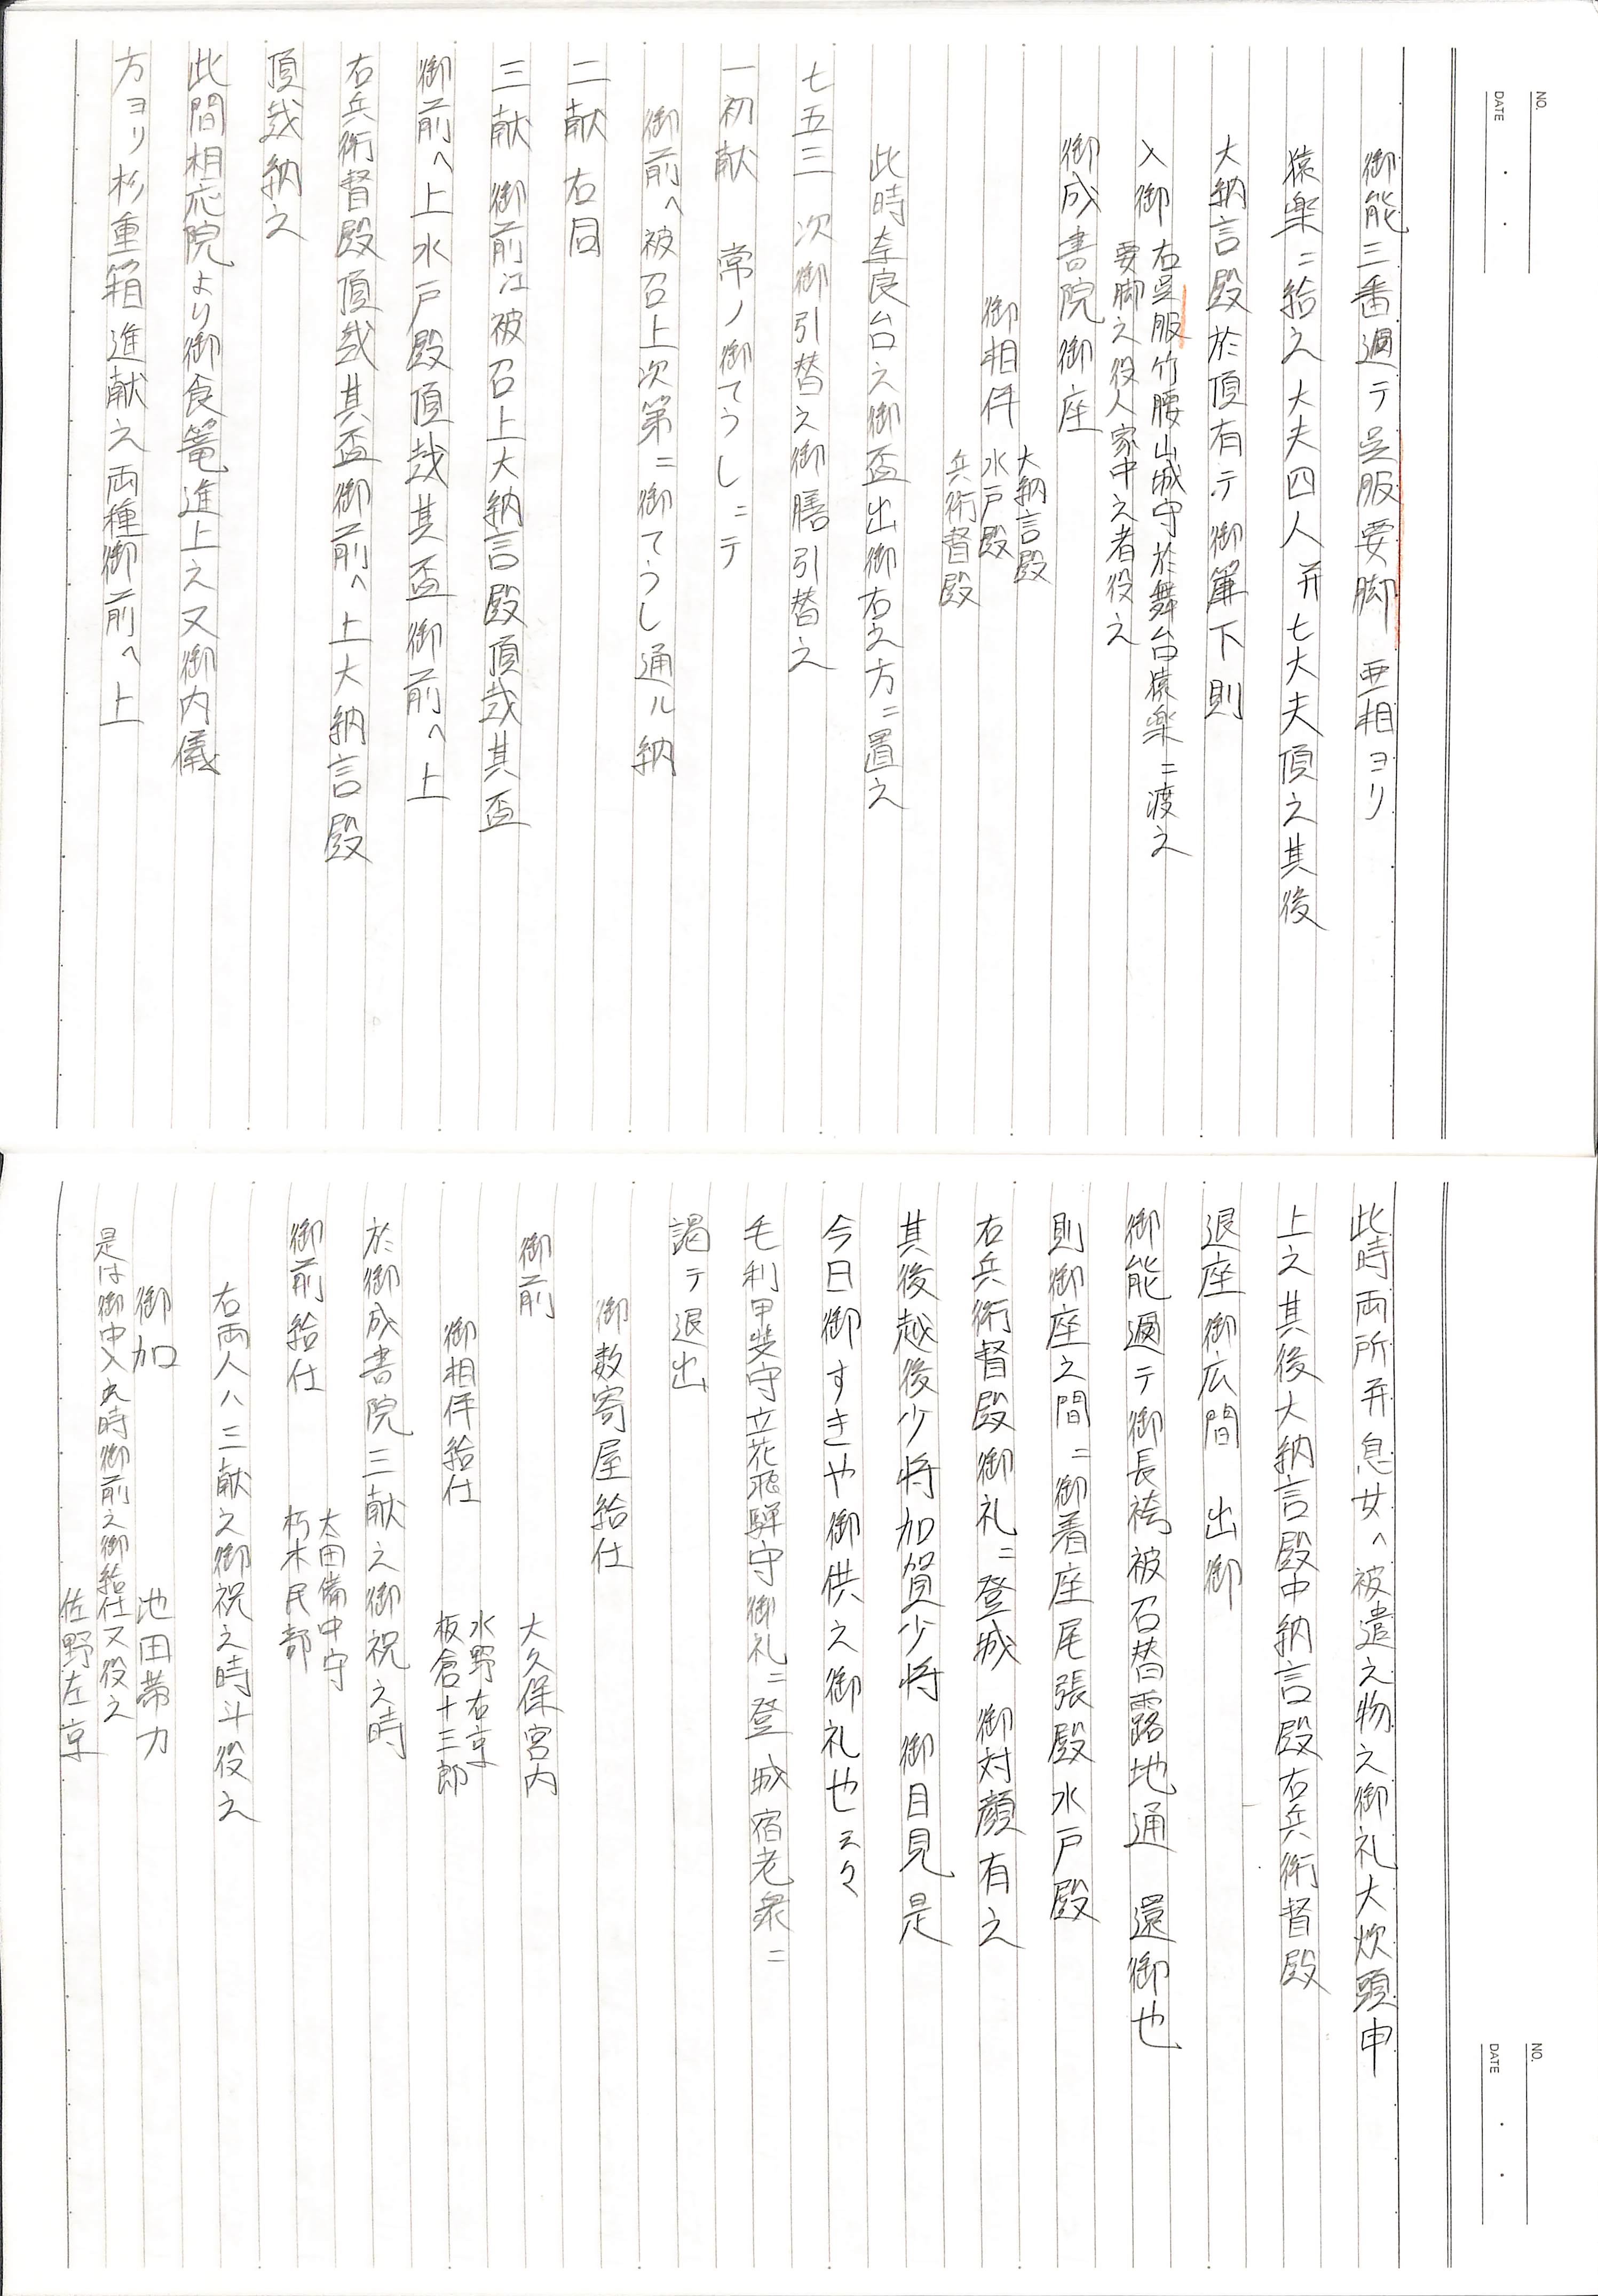 NO.
DATE
御能三番過テ呉服要脚 亜相ヨリ
猿楽ニ給之大夫四人并七大夫頂之其後
大納言殿於頂有テ御簾下則
入御 右呉服竹腰山城守於舞台猿楽ニ渡之
要脚之役人家中之者役之
御成書院御座
大納言殿
御相伴 水戸殿
兵衛督殿
此時奈良台之御盃出御右之方ニ置之
七五三 次御引替之御膳引替之
一初献 常ノ御てうしニテ
御前へ被召上次第ニ御てうし通ル納
二献 右同
三献 御前江被召上大納言殿頂哉其盃
御前へ上水戸殿頂哉其盃御前へ上
右兵衛督殿頂哉其盃御前へ上大納言殿
頂哉納之
此間相応院より御食篭進上之又御内儀
方ヨリ杉重箱進献之両種御前へ上
NO.
DATE
此時両所并息女へ被遣之物之御礼大炊頭申
上之其後大納言殿中納言殿右兵衛督殿
退座御広間 出御
御能過テ御長袴被召替露地通 還御也
則御座之間ニ御着座尾張殿水戸殿
右兵衛督殿御礼ニ登城 御対顔有之
其後越後少将加賀少将 御目見是
今日御すきや御供之御礼也云々
毛利甲斐守立花飛騨守御礼ニ登城宿老衆ニ
謁テ退出
御数寄屋給仕
御前 大久保宮内
御相伴給仕 水野右京
板倉十三郎
於御成書院三献之御祝之時
御前給仕 太田備中守
朽木民部
右両人ハ三献之御祝之時斗役之
御加 池田帯刀
是は御中入之時御前之御給仕又役之
佐野左京